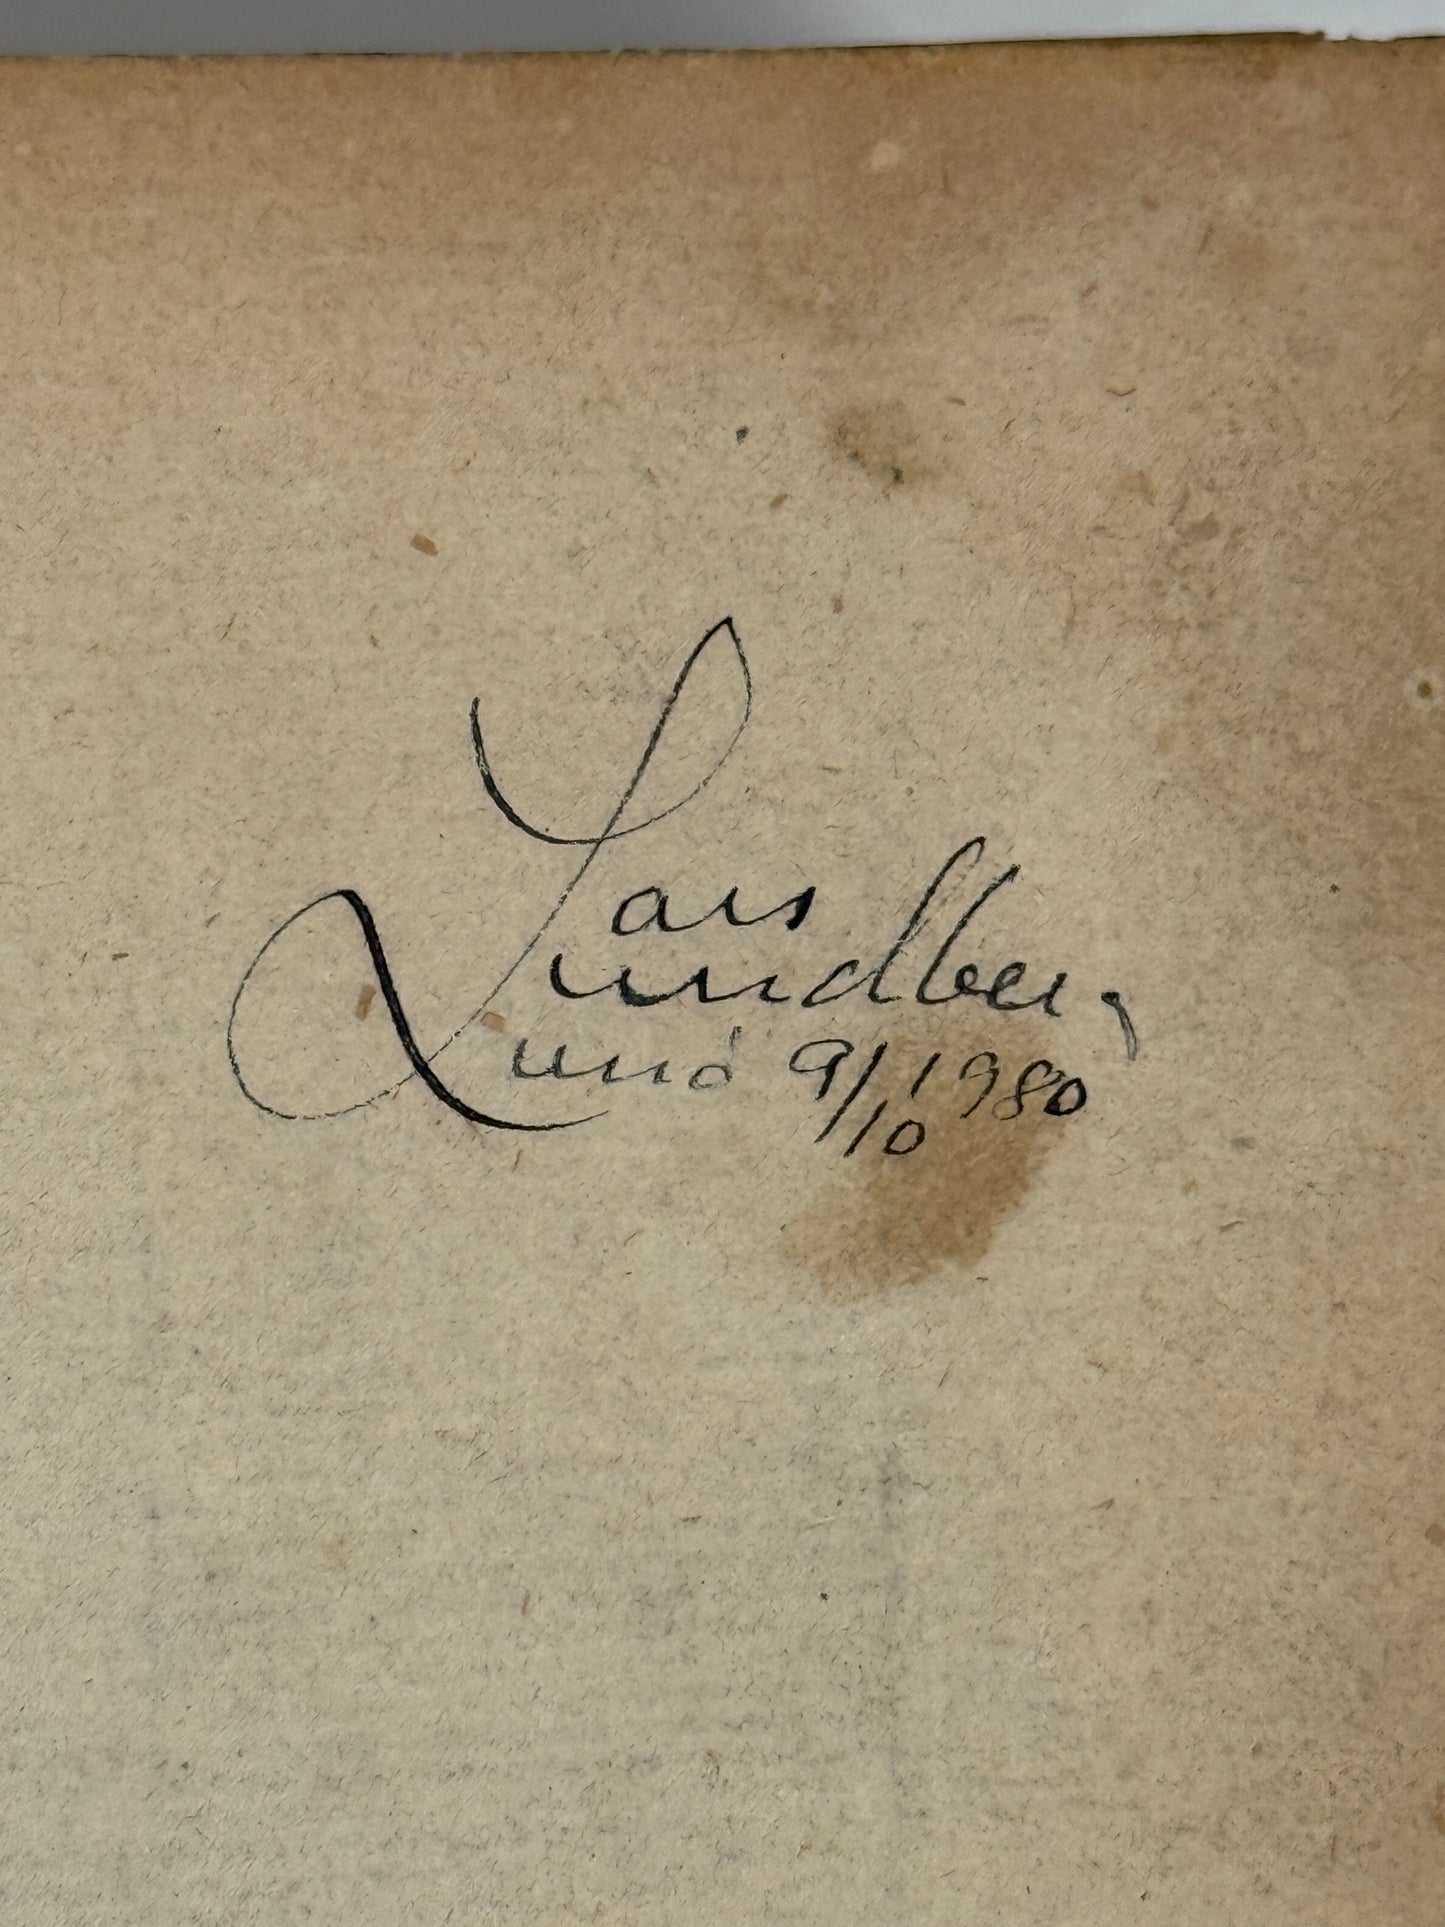 Lars
Lundberg
Lund 9/10 1980